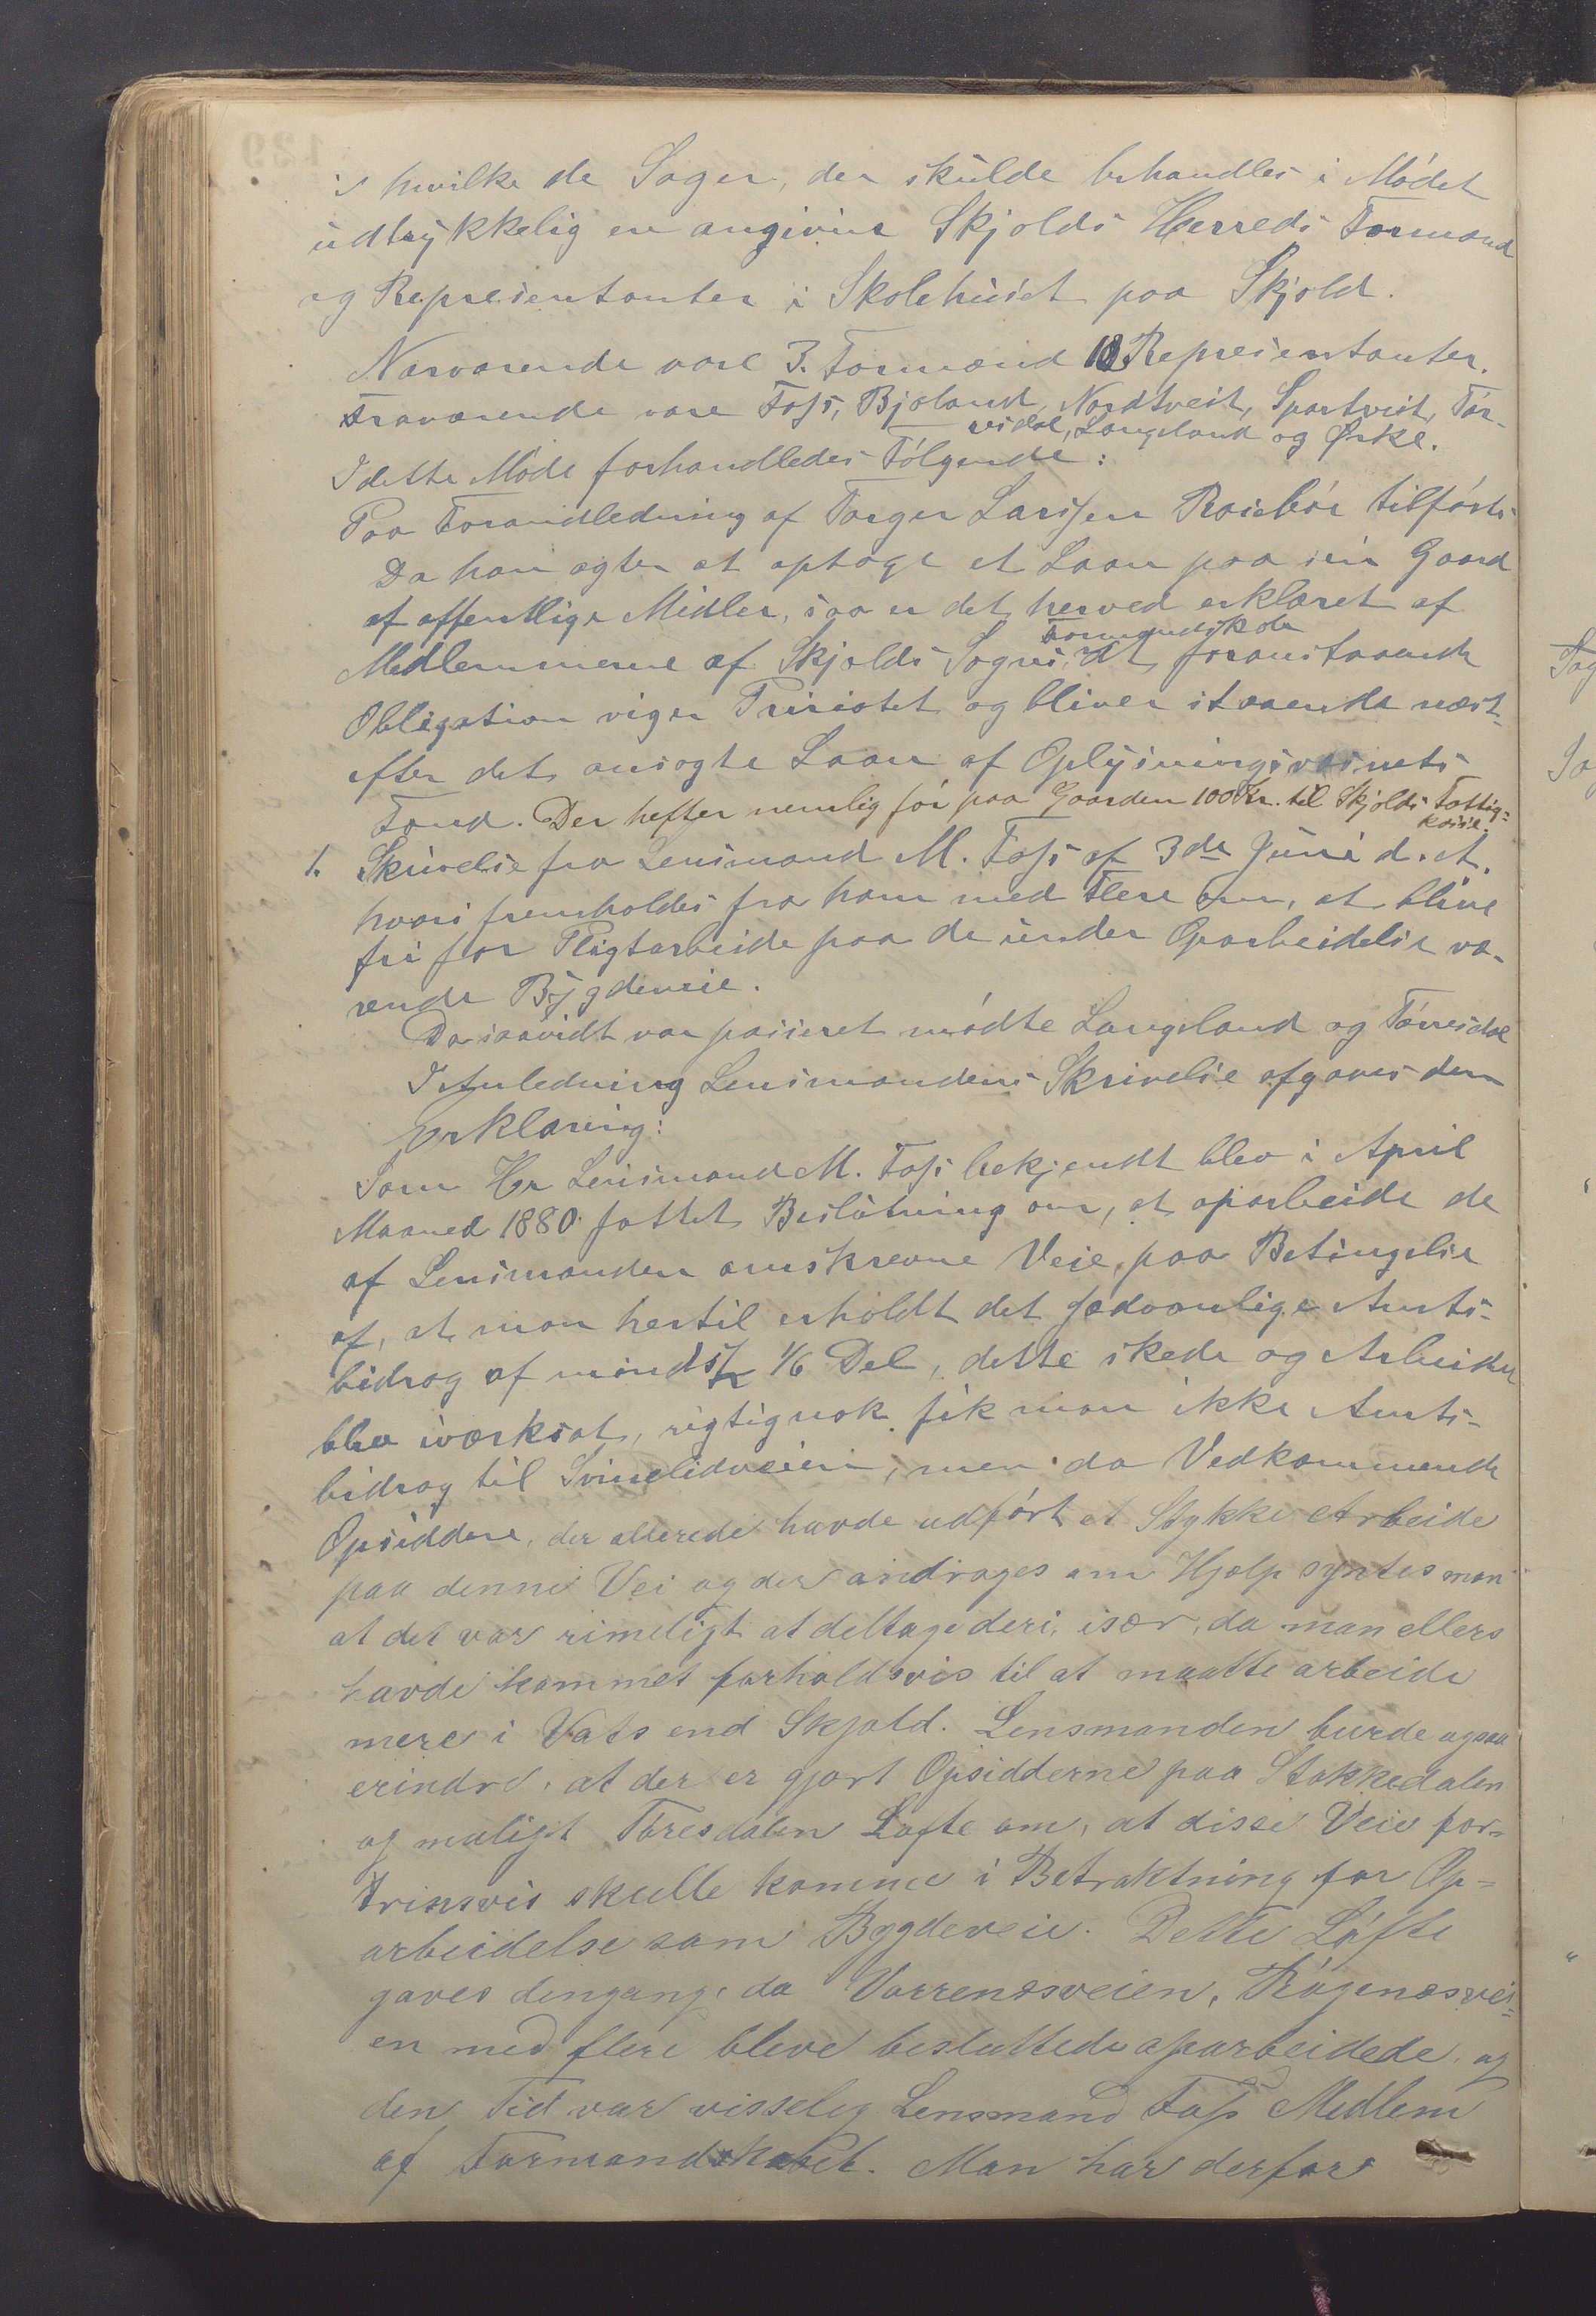 i hvilke de Sager, der skulde behandles i Mødet
udtrykkelig ere angivne Skjolds Herreds Formænd
og Repræsentanter i Skolehuset paa Skjold.
Nærværende vare 3. Formænd 10 Repræsentanter.
Fraværende vare Foss, Bjøland, Nordtveit, Spartveit, Tör-
resdal, Langeland og Ørke.
I dette Møde forhandledes Følgende:
Paa Foranledning af Torger Larssen Roiebør tilførtes
Da han agter at optage et Laan paa sin Gaard
af offentlige Midler, saa er det herved erklæret af
Formandskab
Medlemmerne af Skjolds Sogns, at foranstaaende
Obligation viger Prioritet og bliver staaende næst
efter det ansøgte Laan af Oplysningsvæsnets
Fond. Der hefter nemlig før paa Gaarden 100 Kr. til Skjolds Fattig-
kasse.
1. Skrivelse fra Lensmand M. Foss af 3de Juni d. A.
hvori fremholdes fra ham med Flere om, at blive
fri for Pligtarbeide paa de under Oparbeidelse væ-
rende Bygdeveie.
Da saavidt var passeret mødte Langeland og Törresdal
I Anledning Lensmandens Skrivelse afgaves den
Erklæring:
Som Hr Lensmand M. Foss bekjendt blev i April
Maaned 1880 fattet Beslutning om, at oparbeide de
af Lensmanden omskrevne Veie, paa Betingelse
af, at man hertil erholdt det sædvanlige Amts-
bidrag af mindst 1/6 Del, dette skede og Arbeidet
blev iværksat, rigtignok fik man ikke Amts-
bidrag til Svinelidveien, men da Vedkommende
Opsiddere, der allerede havde udført et Stykke Arbeide
paa denne Vei og der andrages om Hjælp syntes man
at det var rimeligt at deltage deri, især, da man ellers
havde kommet forholdsvis til at maatte arbeide
mere i Vats end Skjold. Lensmanden burde ogsaa
erindre, at der er gjort Opsidderne paa Stakkedalen
og muligt Toresdalen Løfte om, at disse Veie for-
trinsvis skulle komme i Betraktning for Op-
arbeidelse som Bygdeveie. Dette Løfte
gaves dengang, da Varrenesveien, Rögenesvei-
en med flere bleve besluttede oparbeidede, og
den Tid var visselig Lensmand Foss Medlem
af Formandskabet. Man har derfor